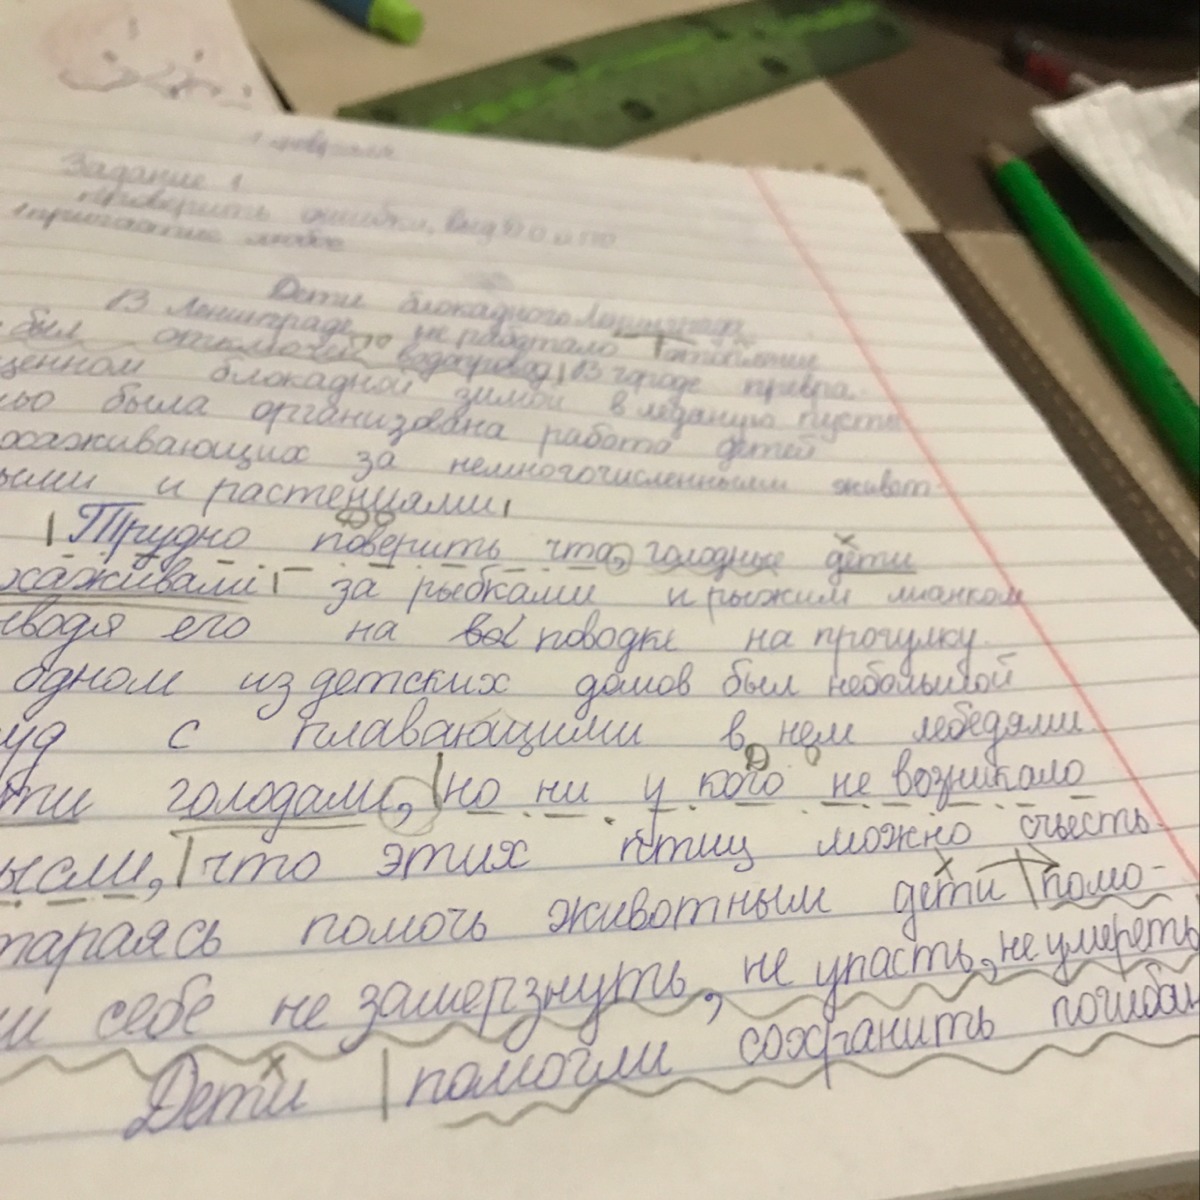 Задание 1
Проверить ошибки,
Дети блокадного Ленинграда
В Ленинграде не работало отопление
был отключен водопровод В городе превра-
щенном блокадной зимой в ледяную пусты
была организована работа детей
хаживающих за немногочисленными живот-
ыми и растениями
Трудно поверить что, голодные дети
хаживали за рыбками и рыжим мишком
еводя его на поводке на прогулку.
одном из детских домов был небольшой
уд с плавающими в нем лебедями.
ти голодали, но ни у кого не возникало
ысли, что этих птиц можно съесть.
тараясь помочь животным дети помо-
ли себе не замерзнуть, не упасть, не умереть
Дети помогли сохранить погибаю